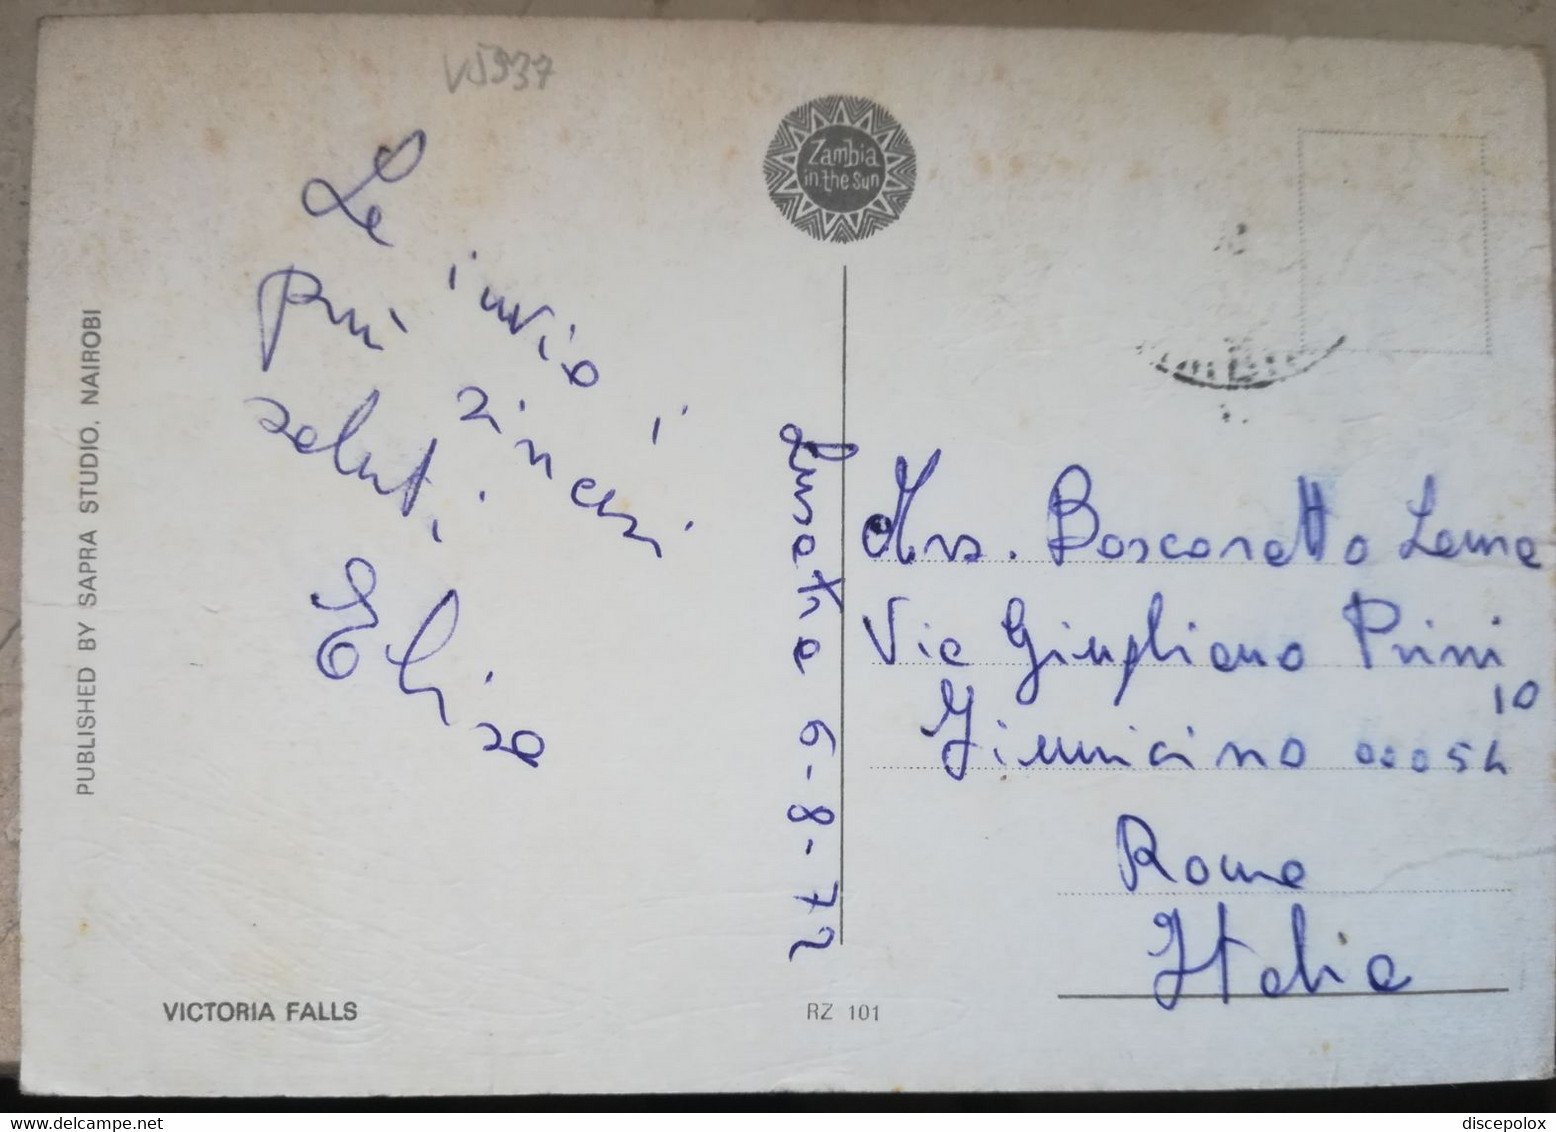 V5937
Zambia
in the sun
Le invio i
più sinceri
saluti
Elisa
Lusaka 6-8-72
Mrs. Boscoretto
Via Giugliano Prini
10
Fiumicino 00054
Roma
Italia
PUBLISHED BY SAPRA STUDIO, NAIROBI
VICTORIA FALLS
RZ 101
discepolox